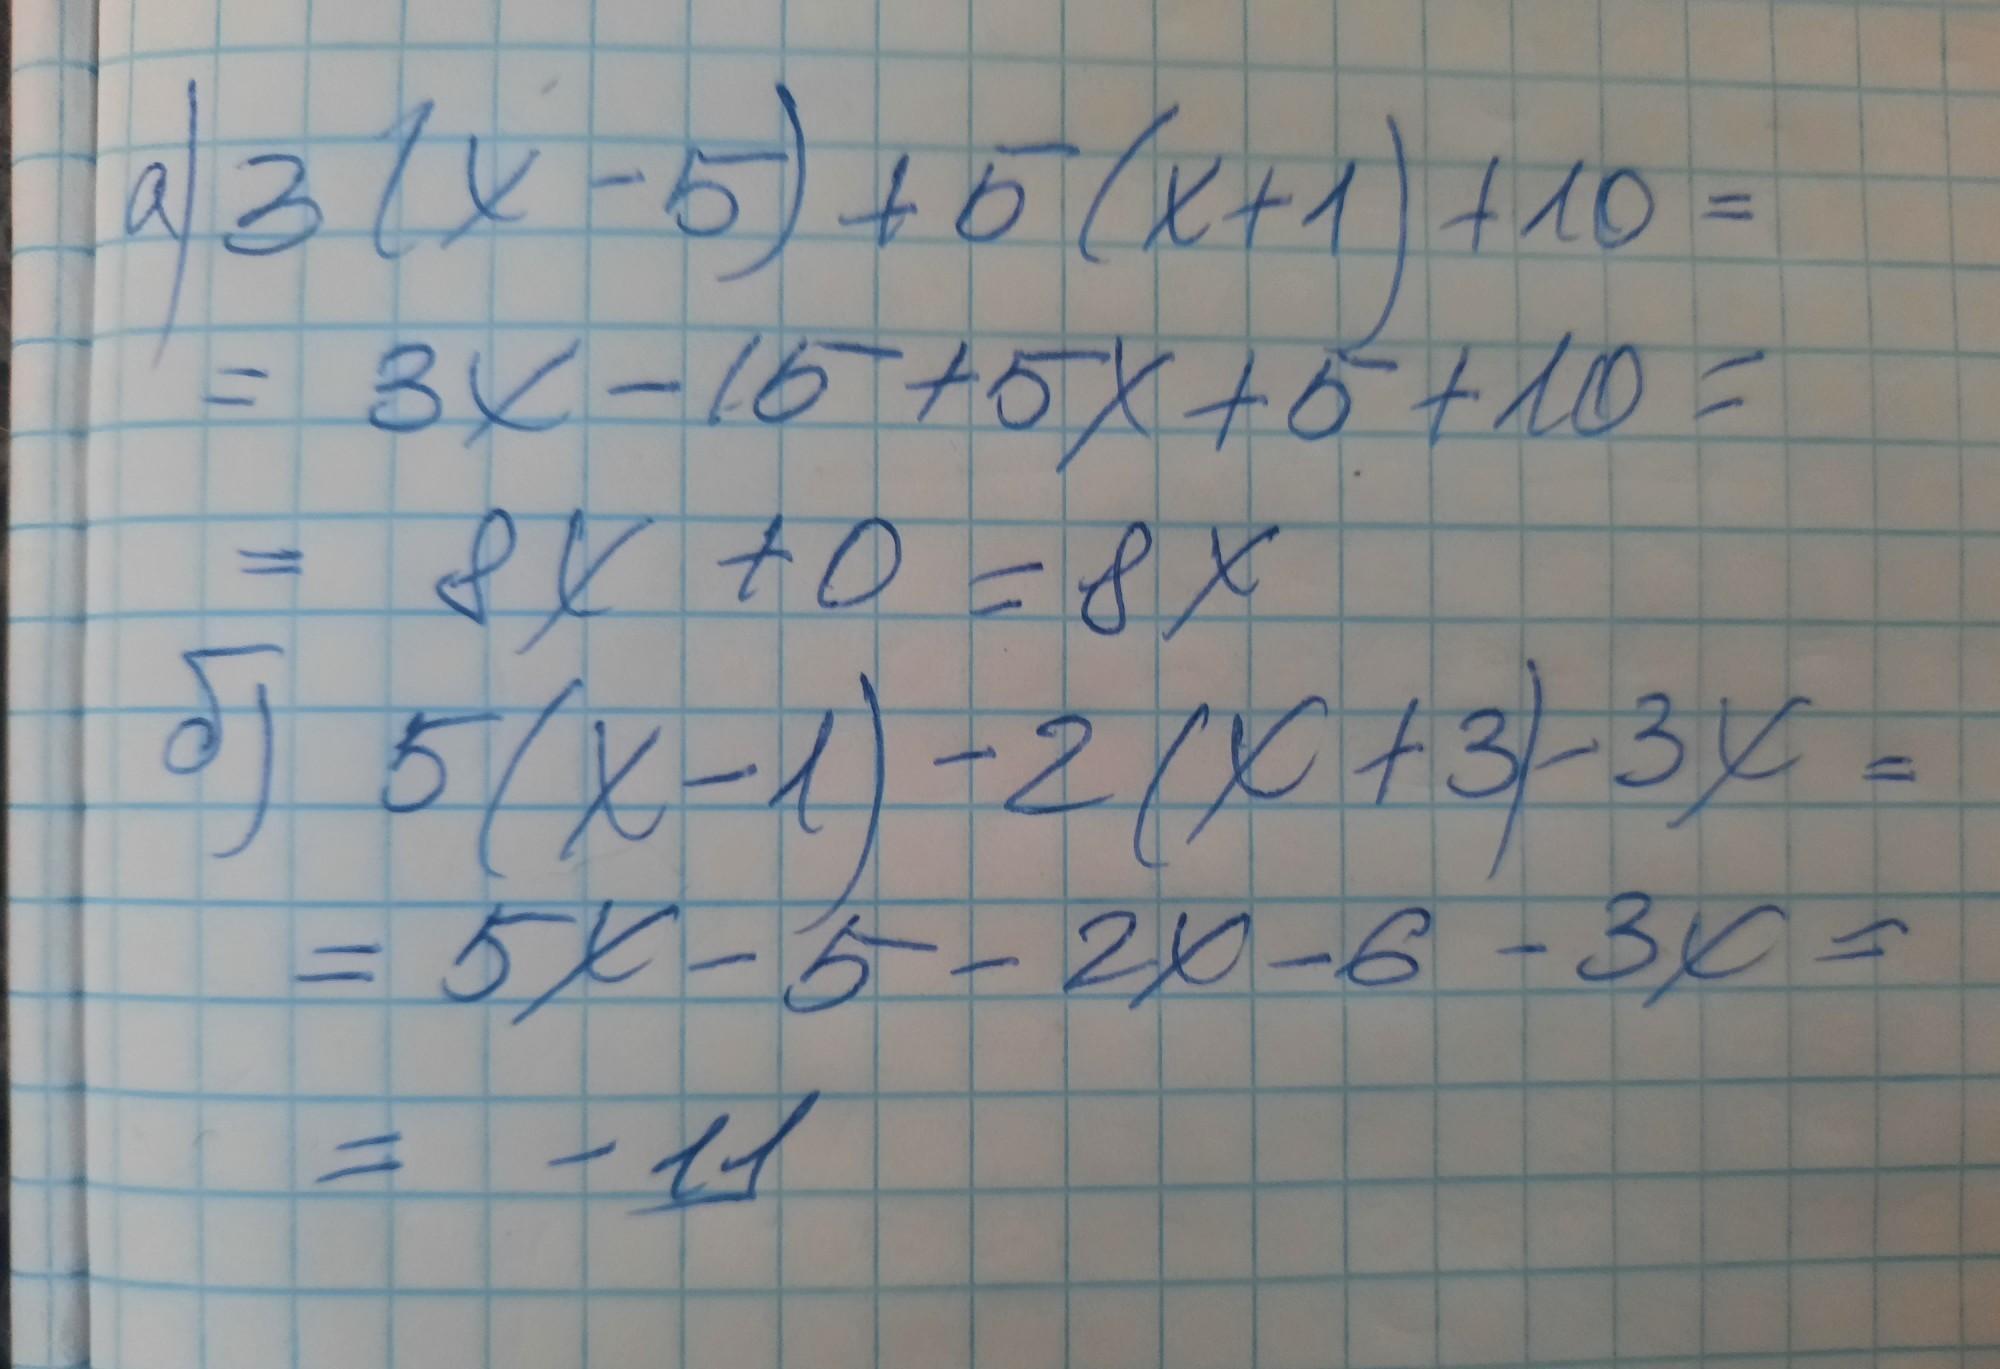 а) 3(x-5)+5(x+1)+10=
= 3x-15+5x+5+10=
= 8x+0=8x
б) 5(x-1)-2(x+3)-3x=
= 5x-5-2x-6-3x=
= -11